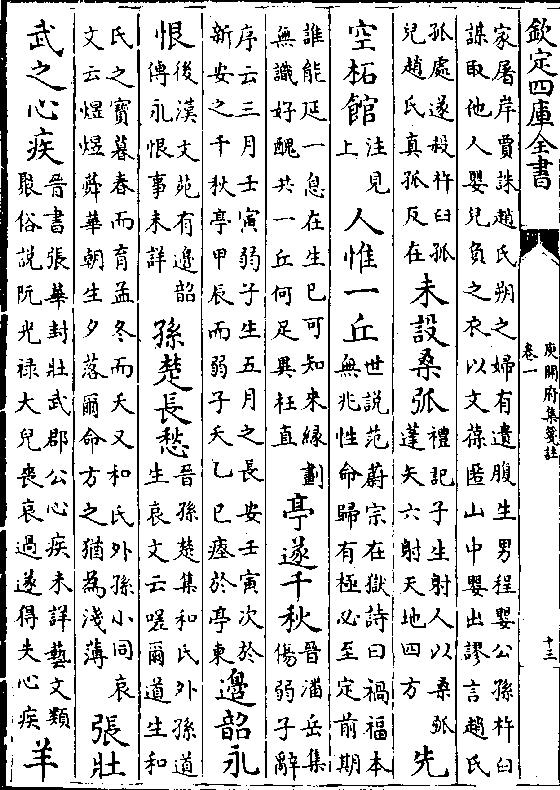 欽定四庫全書
庾開府集箋註
卷一
十三
家屠岸賈誅趙氏朔之婦有遺腹生男程嬰公孫杵臼
謀取他人嬰兒負之衣以文葆匿山中嬰出謬言趙氏
孤處遂殺杵臼孤
兒趙氏真孤反在
未設桑弧
禮記子生射人以桑弧
蓬矢六射天地四方
先
空柘館
注見
上
人惟一丘
世説范蔚宗在獄詩曰禍福本
無兆性命歸有極必至定前期
誰能延一息在生已可知來緣劃
無識好醜共一丘何足異枉直
亭遂千秋
晉潘岳集
傷弱子辭
序云三月壬寅弱子生五月之長安壬寅次於
新安之千秋亭甲辰而弱子夭乙巳瘞於亭東
邊韶永
恨
後漢文苑有邊韶
傳永恨事未詳
孫楚長愁
晉孫楚集和氏外孫道
生哀文云嗟爾道生和
氏之寳暮春而育孟冬而夭又和氏外孫小同哀
文云煜煜蕣華朝生夕落爾命方之猶為淺薄
張壯
武之心疾
晉書張華封壯武郡公心疾未詳藝文類
聚俗説阮光禄大兒喪哀過遂得失心疾
羊